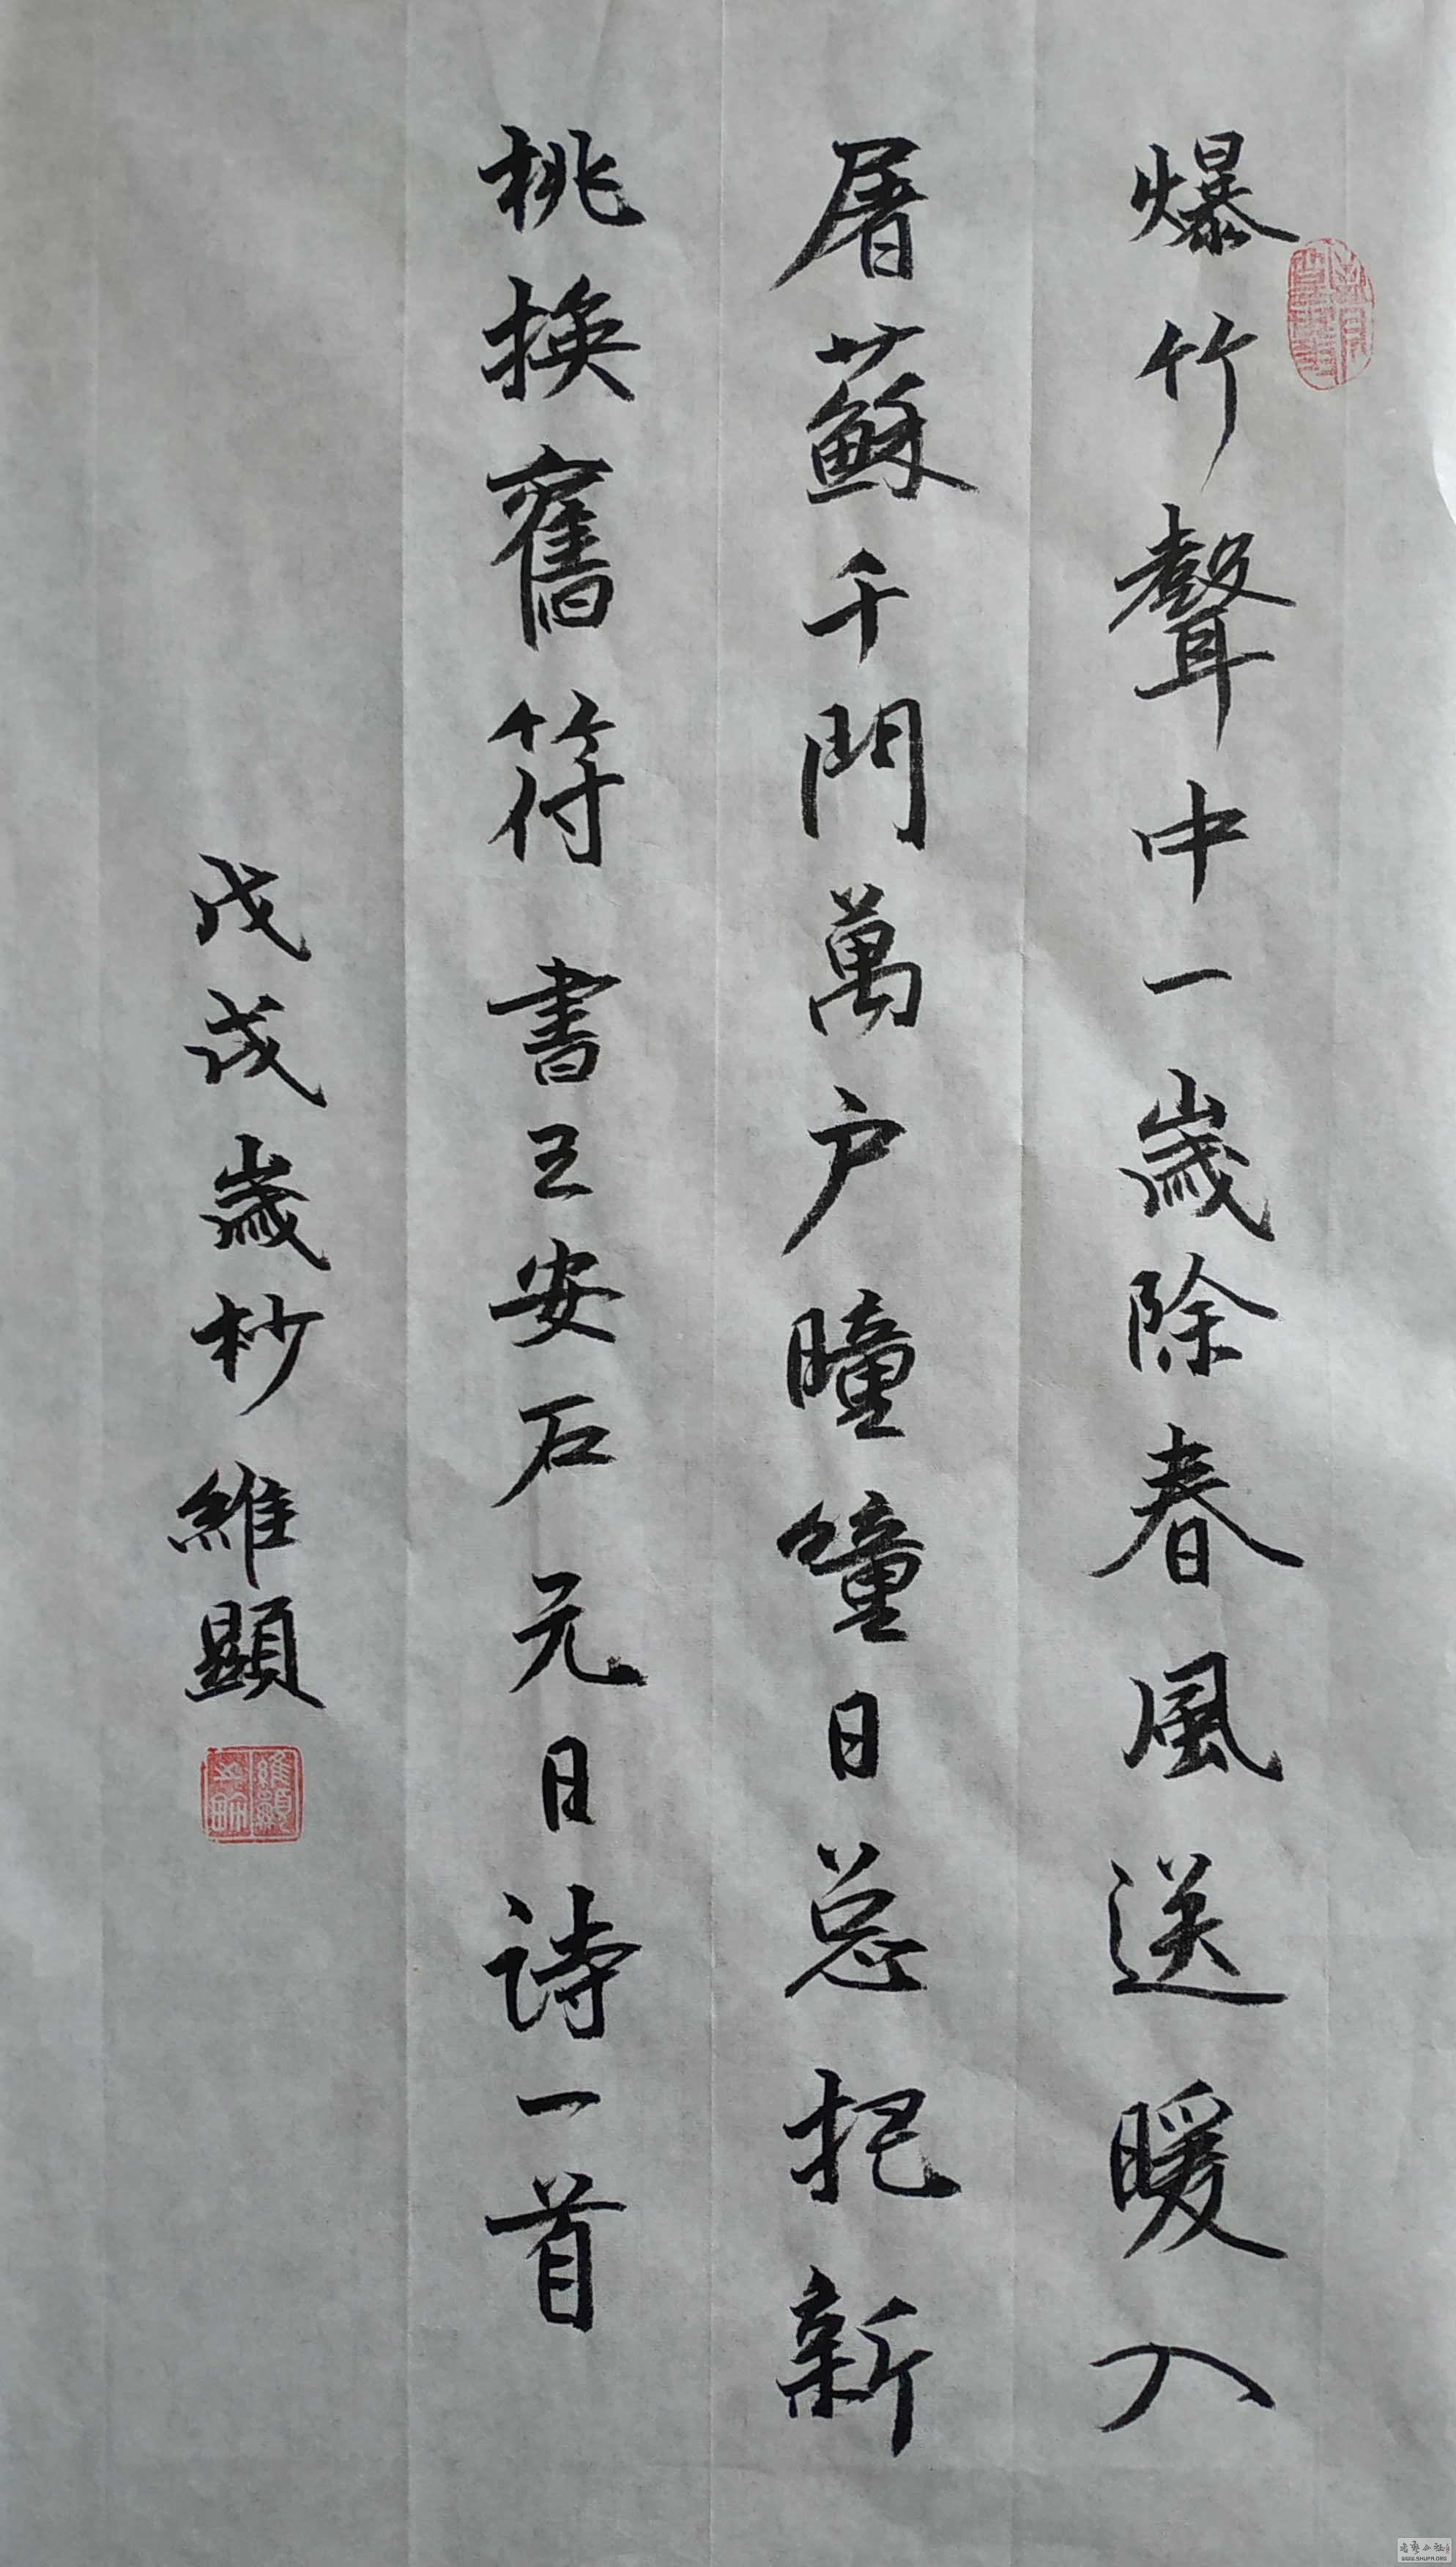 爆竹聲中一歲除春風送暖入
屠蘇千門萬户曈曈日总把新
桃換舊符書王安石元日詩一首
戊戌歲杪維顯
WWW.SHUFA.ORG